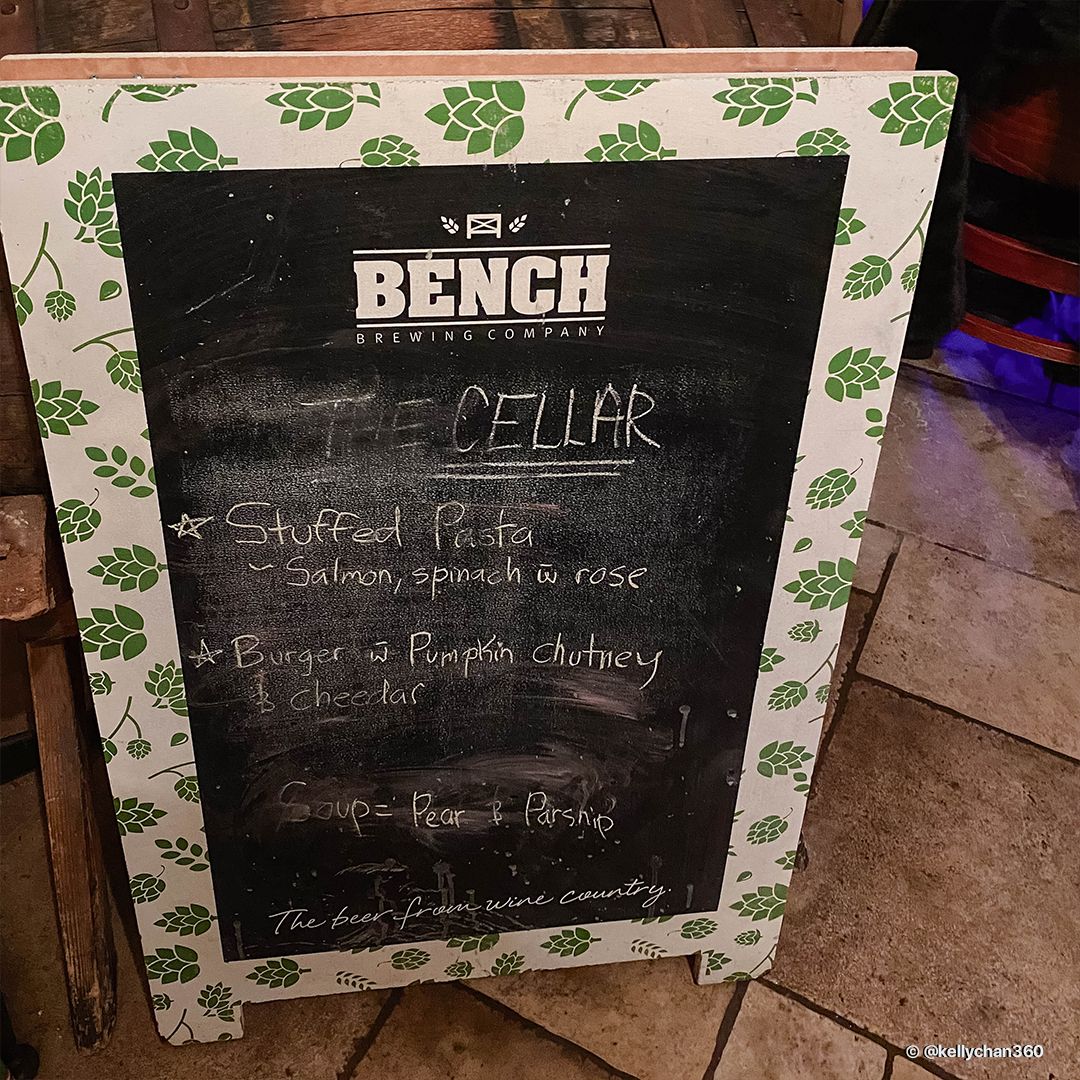 BENCH
BREWING COMPANY
THE CELLAR
☆ Stuffed Pasta
~ Salmon, spinach w̄ rose
☆ Burger w̄ Pumpkin chutney
& cheedar
Soup = Pear & Parship
The beer from wine country.
© @kellychan360